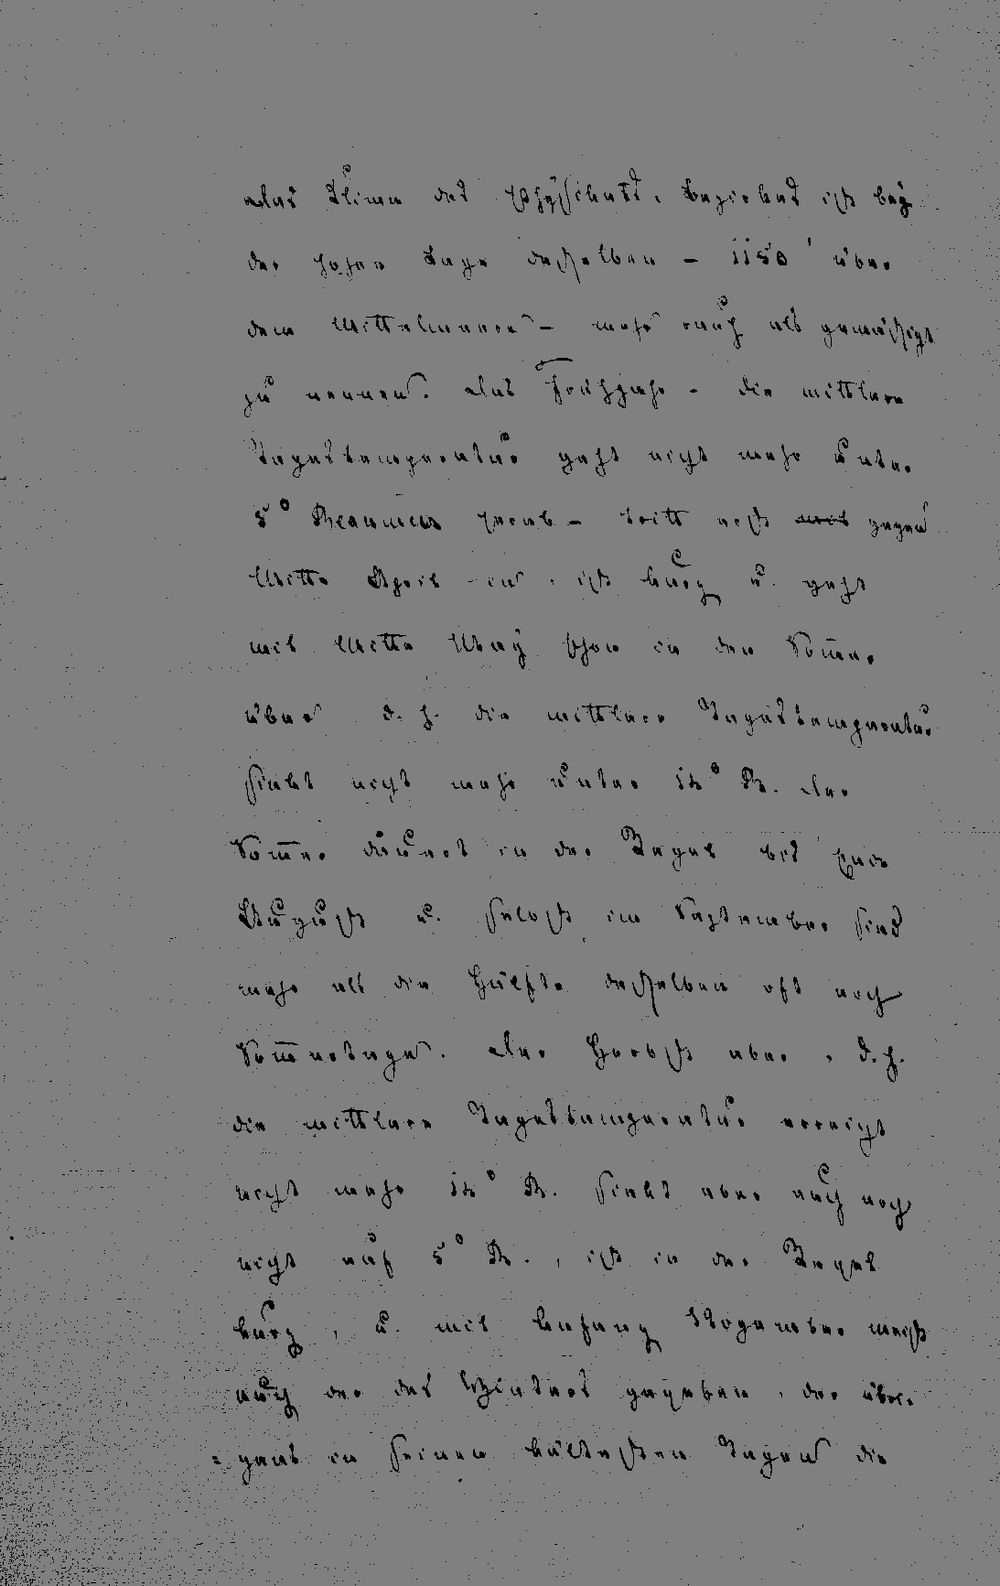 Das Klima des Physikats-Bezirkes ist bey
der hohen Lage desselben – 1150' über
dem Mittelmeere – mehr rauh als gemäßigt
zu nennen. Das Frühjahr – die mittlere
Tagestemperatur geht nicht mehr unter
5° Reaumeur herab – tritt erst gegen
Mitte April ein, ist kurz u. geht
mit Mitte May schon in den Som̅er
über d. h. die mittlere Tagestemperatur
sinkt nicht mehr unter 12° R. Der
Som̅er dauert in der Regel bis Ende
August u. selbst im September sind
mehr als die Hälfte desselben oft noch
Som̅ertage. Der Herbst aber, d. h.
die mittlere Tagestemperatur erreicht
nicht mehr 12° R. sinkt aber auch noch
nicht auf 5° R., ist in der Regel
kurz, u. mit Anfang November meist
auch der des Winters gegeben, der übri-
=gens in seinen kältesten Tagen die